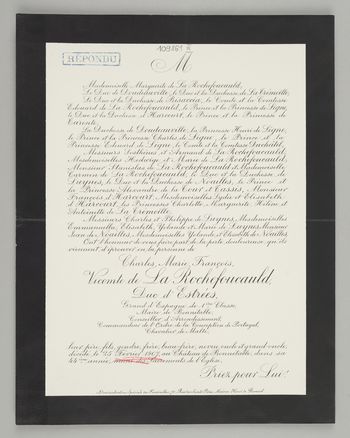 109861
RÉPONDU
M
Mademoiselle Marguerite de La Rochefoucauld,
Le Duc de Doudeauville, le Duc et la Duchesse de La Trémoïlle,
Le Duc et la Duchesse de Bisaccia, le Comte et la Comtesse
Edouard de La Rochefoucauld, le Prince et la Princesse de Ligne,
le Duc et la Duchesse d'Harcourt, le Prince et la Princesse de
Tarente,
La Duchesse de Doudeauville, la Princesse Henri de Ligne,
le Prince et la Princesse Charles de Ligne, le Prince et la
Princesse Edouard de Ligne, le Comte et la Comtesse
Messieurs Sosthènes et Armand de La Rochefoucauld,
Mesdemoiselles Hedwige et Marie de La Rochefoucauld,
Monsieur Stanislas de La Rochefoucauld et Mademoiselle
Carmen de La Rochefoucauld, le Duc et la Duchesse de
Luynes, le Duc et la Duchesse de Noailles, le Prince et
la Princesse Alexandre de la Tour et Tassis, Monsieur
François d'Harcourt, Mesdemoiselles Lydie et Elisabeth
d'Harcourt, les Princesses Charlotte, Marguerite, Hélène et
Antoinette de La Trémoïlle
Messieurs Charles et Philippe de Luynes, Mesdemoiselles
Emmanuelle, Elisabeth, Yolande et Marie de Luynes, Monsieur
Jean de Noailles, Mesdemoiselles Yolande et Elisabeth de Noailles
Ont l'honneur de vous faire part de la perte douloureuse qu'ils
viennent d'éprouver en la personne de
Charles, Marie, François,
Vicomte de La Rochefoucauld,
Duc d'Estrées,
Grand d'Espagne de 1ère Classe,
Maire de Bonnétable,
Conseiller d'Arrondissement,
Commandeur de l'Ordre de la Conception de Portugal,
Chevalier de Malte,
leur père, fils, gendre, frère, beau-frère, neveu, oncle et grand-oncle,
décédé le 25 Février 1907, au Château de Bonnétable, dans sa
44ème année, muni des Sacrements de l'Eglise.
Priez pour Lui!